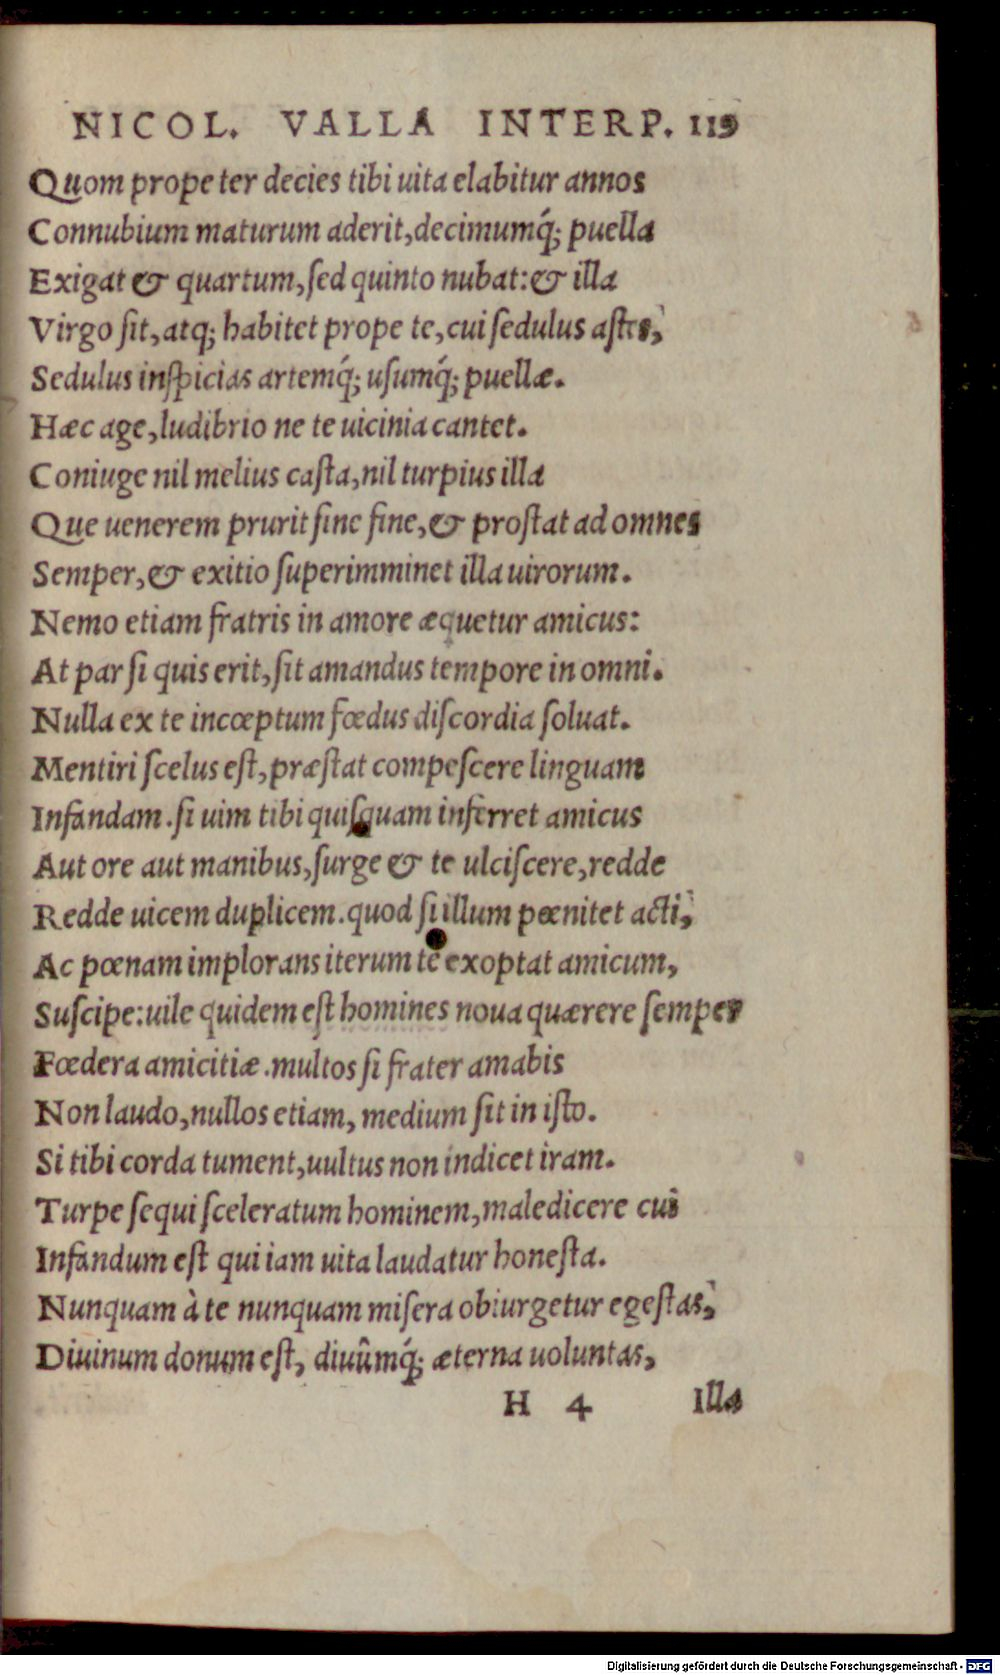 NICOL. VALLA INTERP. 119
Quom prope ter decies tibi uita elabitur annos
Connubium maturum aderit, decimumq́; puella
Exigat & quartum, ſed quinto nubat: & illa
Virgo ſit, atq; habitet prope te, cui ſedulus aſtes,
Sedulus inſpicias artemq́; uſumq́; puellæ.
Hæc age, ludibrio ne te uicinia cantet.
Coniuge nil melius caſta, nil turpius illa
Que uenerem prurit ſine fine, & proſtat ad omnes
Semper, & exitio ſuperimminet illa uirorum.
Nemo etiam fratris in amore æquetur amicus:
At par ſi quis erit, ſit amandus tempore in omni.
Nulla ex te incœptum fœdus diſcordia ſoluat.
Mentiri ſcelus eſt, præſtat compeſcere linguam
Infandam. ſi uim tibi quiſquam inferret amicus
Aut ore aut manibus, ſurge & te ulciſcere, redde
Redde uicem duplicem. quod ſi illum pœnitet acti,
Ac pœnam implorans iterum te exoptat amicum,
Suſcipe: uile quidem eſt homines noua quærere ſemper
Fœdera amicitiæ. multos ſi frater amabis
Non laudo, nullos etiam, medium ſit in iſto.
Si tibi corda tument, uultus non indicet iram.
Turpe ſequi ſceleratum hominem, maledicere cui
Infandum eſt qui iam uita laudatur honeſta.
Nunquam à te nunquam miſera obiurgetur egeſtas,
Diuinum donum eſt, diuûmq́; æterna uoluntas,
H 4 Illa
Digitalisierung gefördert durch die Deutsche Forschungsgemeinschaft - DFG